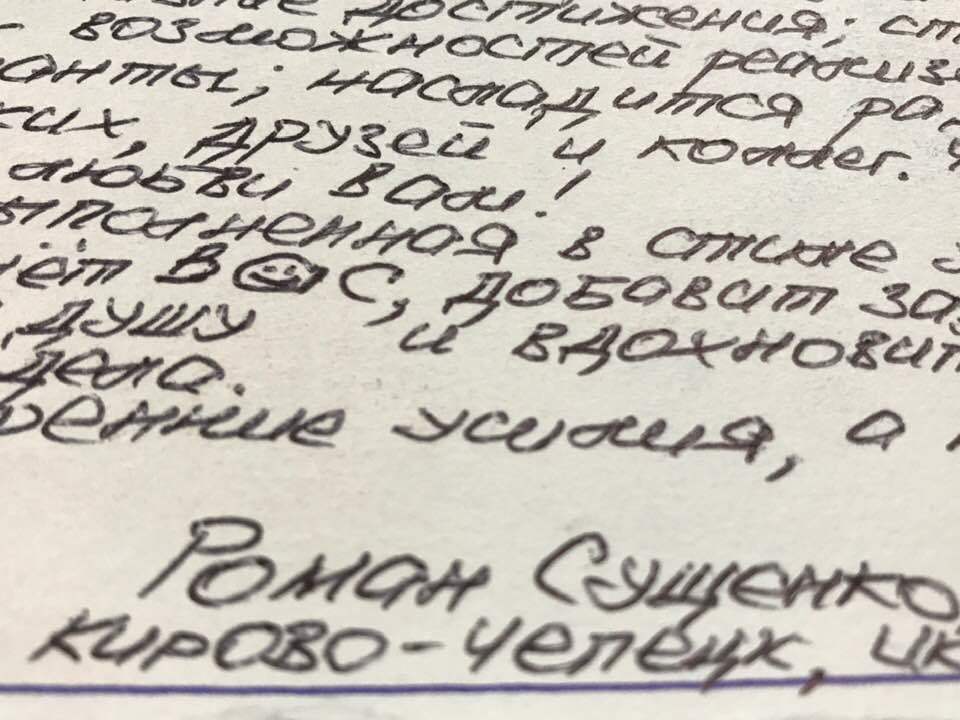 достижения; ст
- возможностей реализ
анты; насладится ра
ких, друзей и коллег. Ч
любви Вам!
ыполненная в стиле
чёт В☺С, добавит за
душу и вдохновит
дела.
ренние усилия, а
Роман Сущенко,
Кирово-Чепецк, ИК